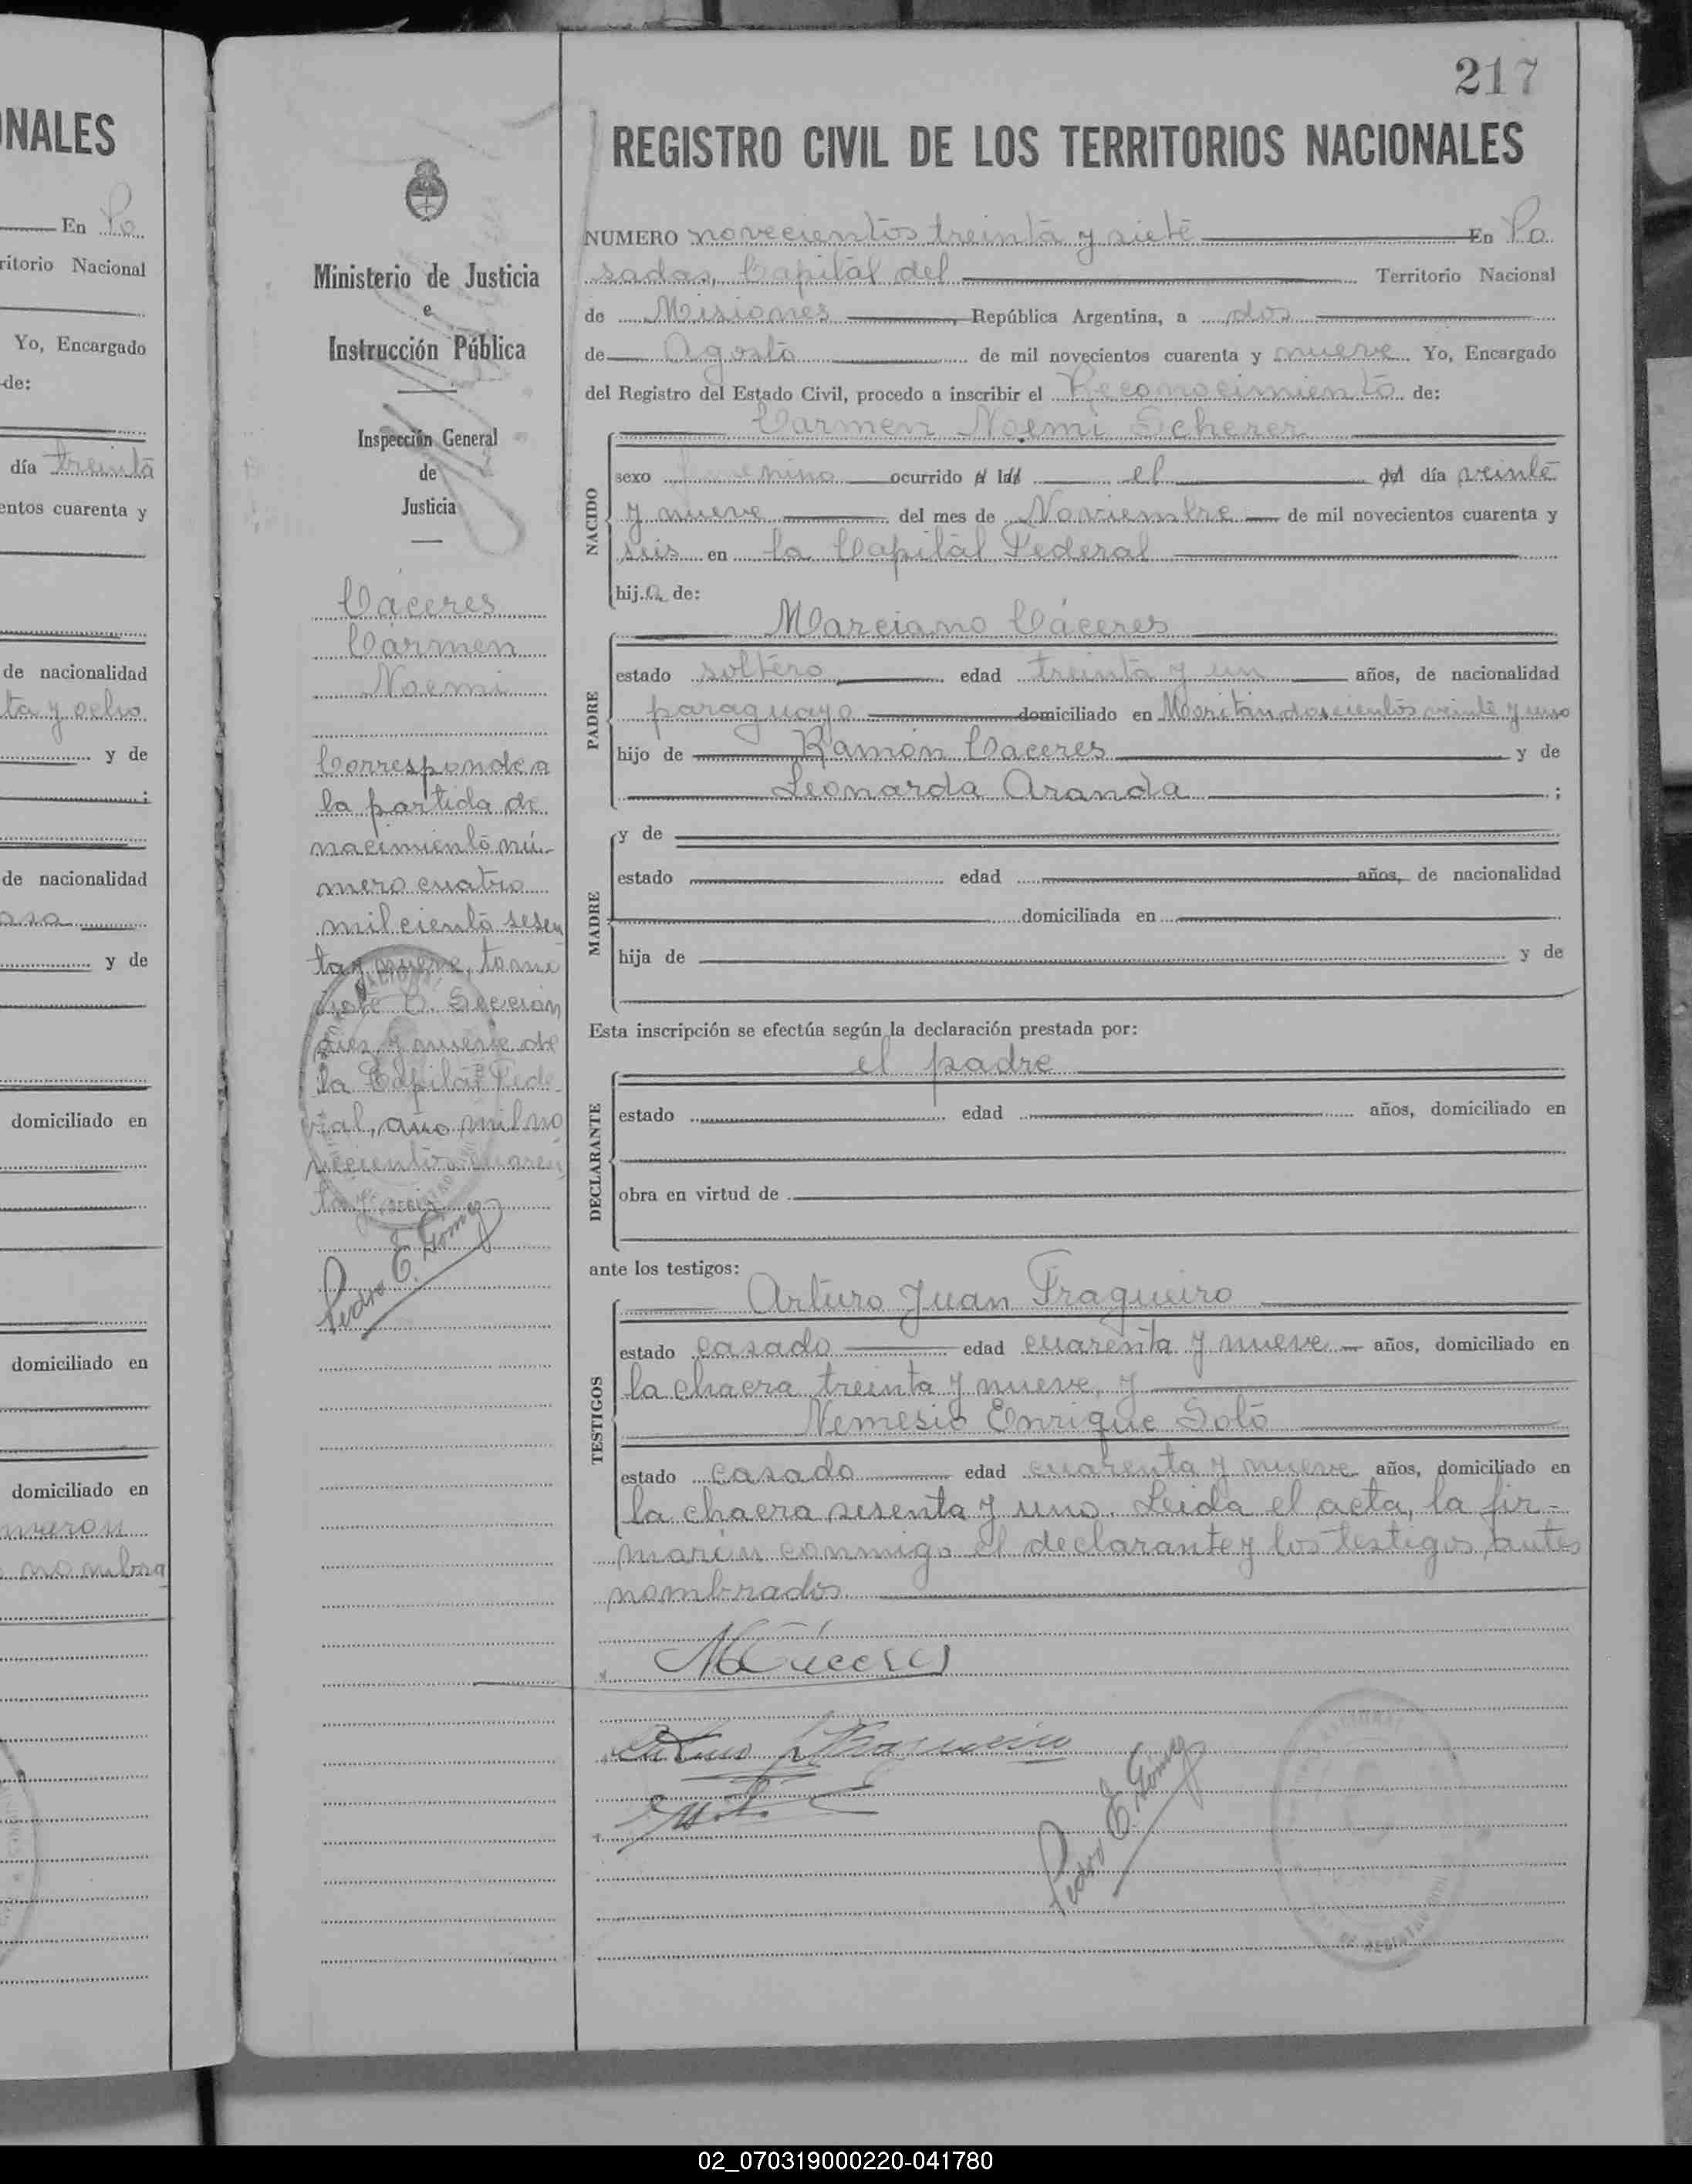 NALES
En Po
ritorio Nacional
Yo, Encargado
de:
día treinta
entos cuarenta y
de nacionalidad
ta y ocho
y de
;
de nacionalidad
y de
domiciliado en
domiciliado en
domiciliado en
maron
nombra
217
REGISTRO CIVIL DE LOS TERRITORIOS NACIONALES
Ministerio de Justicia
e
Instrucción Pública
Inspección General
de
Justicia
Cáceres
Carmen
Noemi
Corresponde a
la partida de
nacimiento nú-
mero cuatro
mil ciento sesen
ta y nueve, tomo
siete C. Sección
diez y nueve de
la Capital Fede-
ral, año mil no
vecientos cuaren
ta y
Pedro E. Gomez
NUMERO novecientos treinta y siete En Po
sadas, Capital del Territorio Nacional
de Misiones, República Argentina, a dos
de Agosto de mil novecientos cuarenta y nueve Yo, Encargado
del Registro del Estado Civil, procedo a inscribir el Reconocimiento de:
Carmen Noemi Scherer
NACIDO
sexo femenino ocurrido el día veinte
y nueve del mes de Noviembre de mil novecientos cuarenta y
seis en la Capital Federal
hija de:
PADRE
Marciano Cáceres
estado soltero edad treinta y un años, de nacionalidad
paraguayo domiciliado en doscientos veinte y uno
hijo de Ramón Caceres y de
Leonarda Aranda ;
MADRE
y de
estado edad años, de nacionalidad
domiciliada en
hija de y de
Esta inscripción se efectúa según la declaración prestada por:
DECLARANTE
el padre
estado edad años, domiciliado en
obra en virtud de
ante los testigos:
TESTIGOS
Arturo Juan Fragueiro
estado casado edad cuarenta y nueve años, domiciliado en
la chacra treinta y nueve, y
Nemesio Enrique Soto
estado casado edad cuarenta y nueve años, domiciliado en
la chacra sesenta y uno. Leida el acta, la fir-
maron conmigo el declarante y los testigos antes
nombrados
MCáceres
Arturo J Fragueiro
Pedro E. Gomez
02_070319000220-041780